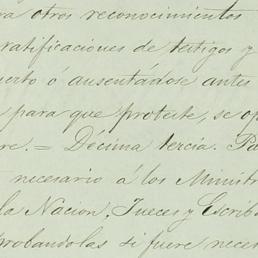 ra otros reconocimientos
ratificaciones de testigos y
uerto o ausentádose antes
para que proteste, se op
re. = Décima tercia. Pa
necesario á los Ministr
la Nacion, Jueces y Escrib
probandolas si fuere neces